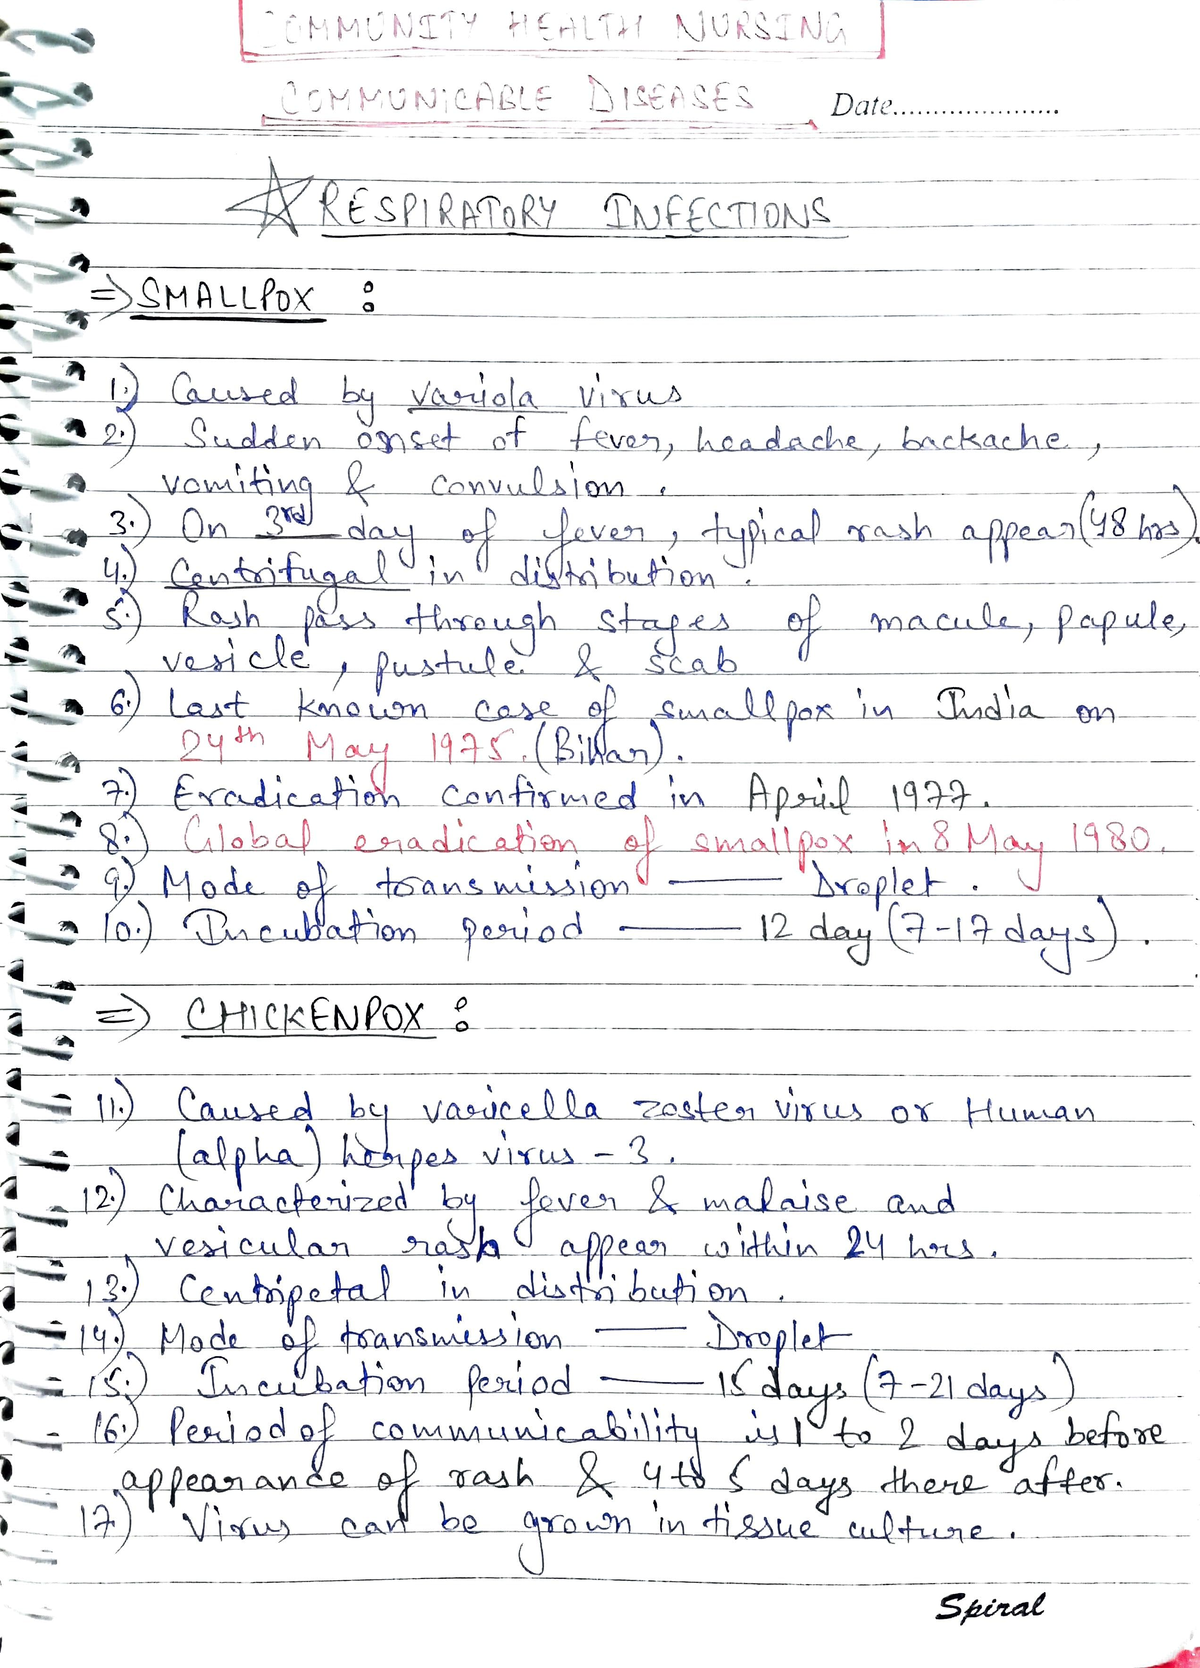 COMMUNITY HEALTH NURSING
COMMUNICABLE DISEASES
Date.....................
RESPIRATORY INFECTIONS
⇒ SMALLPOX :
1.) Caused by variola virus
2.) Sudden onset of fever, headache, backache,
vomiting & convulsion.
3.) On 3rd day of fever, typical rash appear (48 hrs).
4.) Centrifugal in distribution.
5.) Rash pass through stages of macule, papule,
vesicle, pustule & scab
6.) Last known case of smallpox in India on
24th May 1975. (Bihar).
7.) Eradication confirmed in April 1977.
8.) Global eradication of smallpox in 8 May 1980.
9.) Mode of transmission —— Droplet.
10.) Incubation period —— 12 day (7-17 days).
⇒ CHICKENPOX :
11.) Caused by varicella zoster virus or Human
(alpha) herpes virus - 3.
12.) Characterized by fever & malaise and
vesicular rash appear within 24 hrs.
13.) Centripetal in distribution.
14.) Mode of transmission —— Droplet
15.) Incubation period —— 15 days (7-21 days)
16.) Period of communicability is 1 to 2 days before
appearance of rash & 4 to 5 days there after.
17.) Virus can be grown in tissue culture.
Spiral